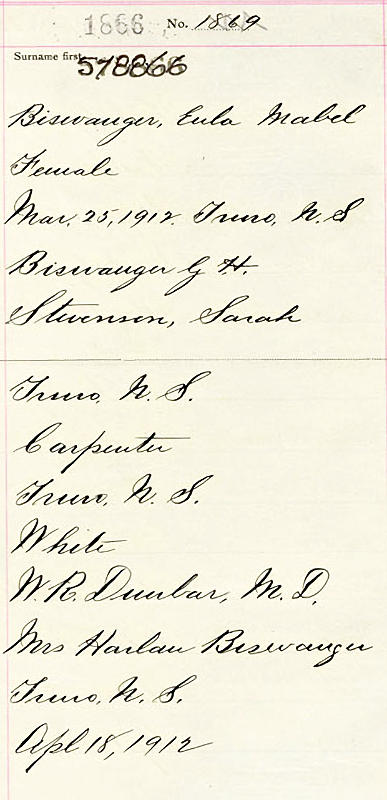 1866 No. 1869
Surname first
578866
Biswanger, Eula Mabel
Female
Mar. 25, 1912. Truro, N.S
Biswanger G H.
Stevenson, Sarah
Truro, N. S.
Carpenter
Truro, N. S.
White
W. R. Dunbar, M. D.
Mrs Harlan Biswanger
Truro, N. S.
Apl 18, 1912